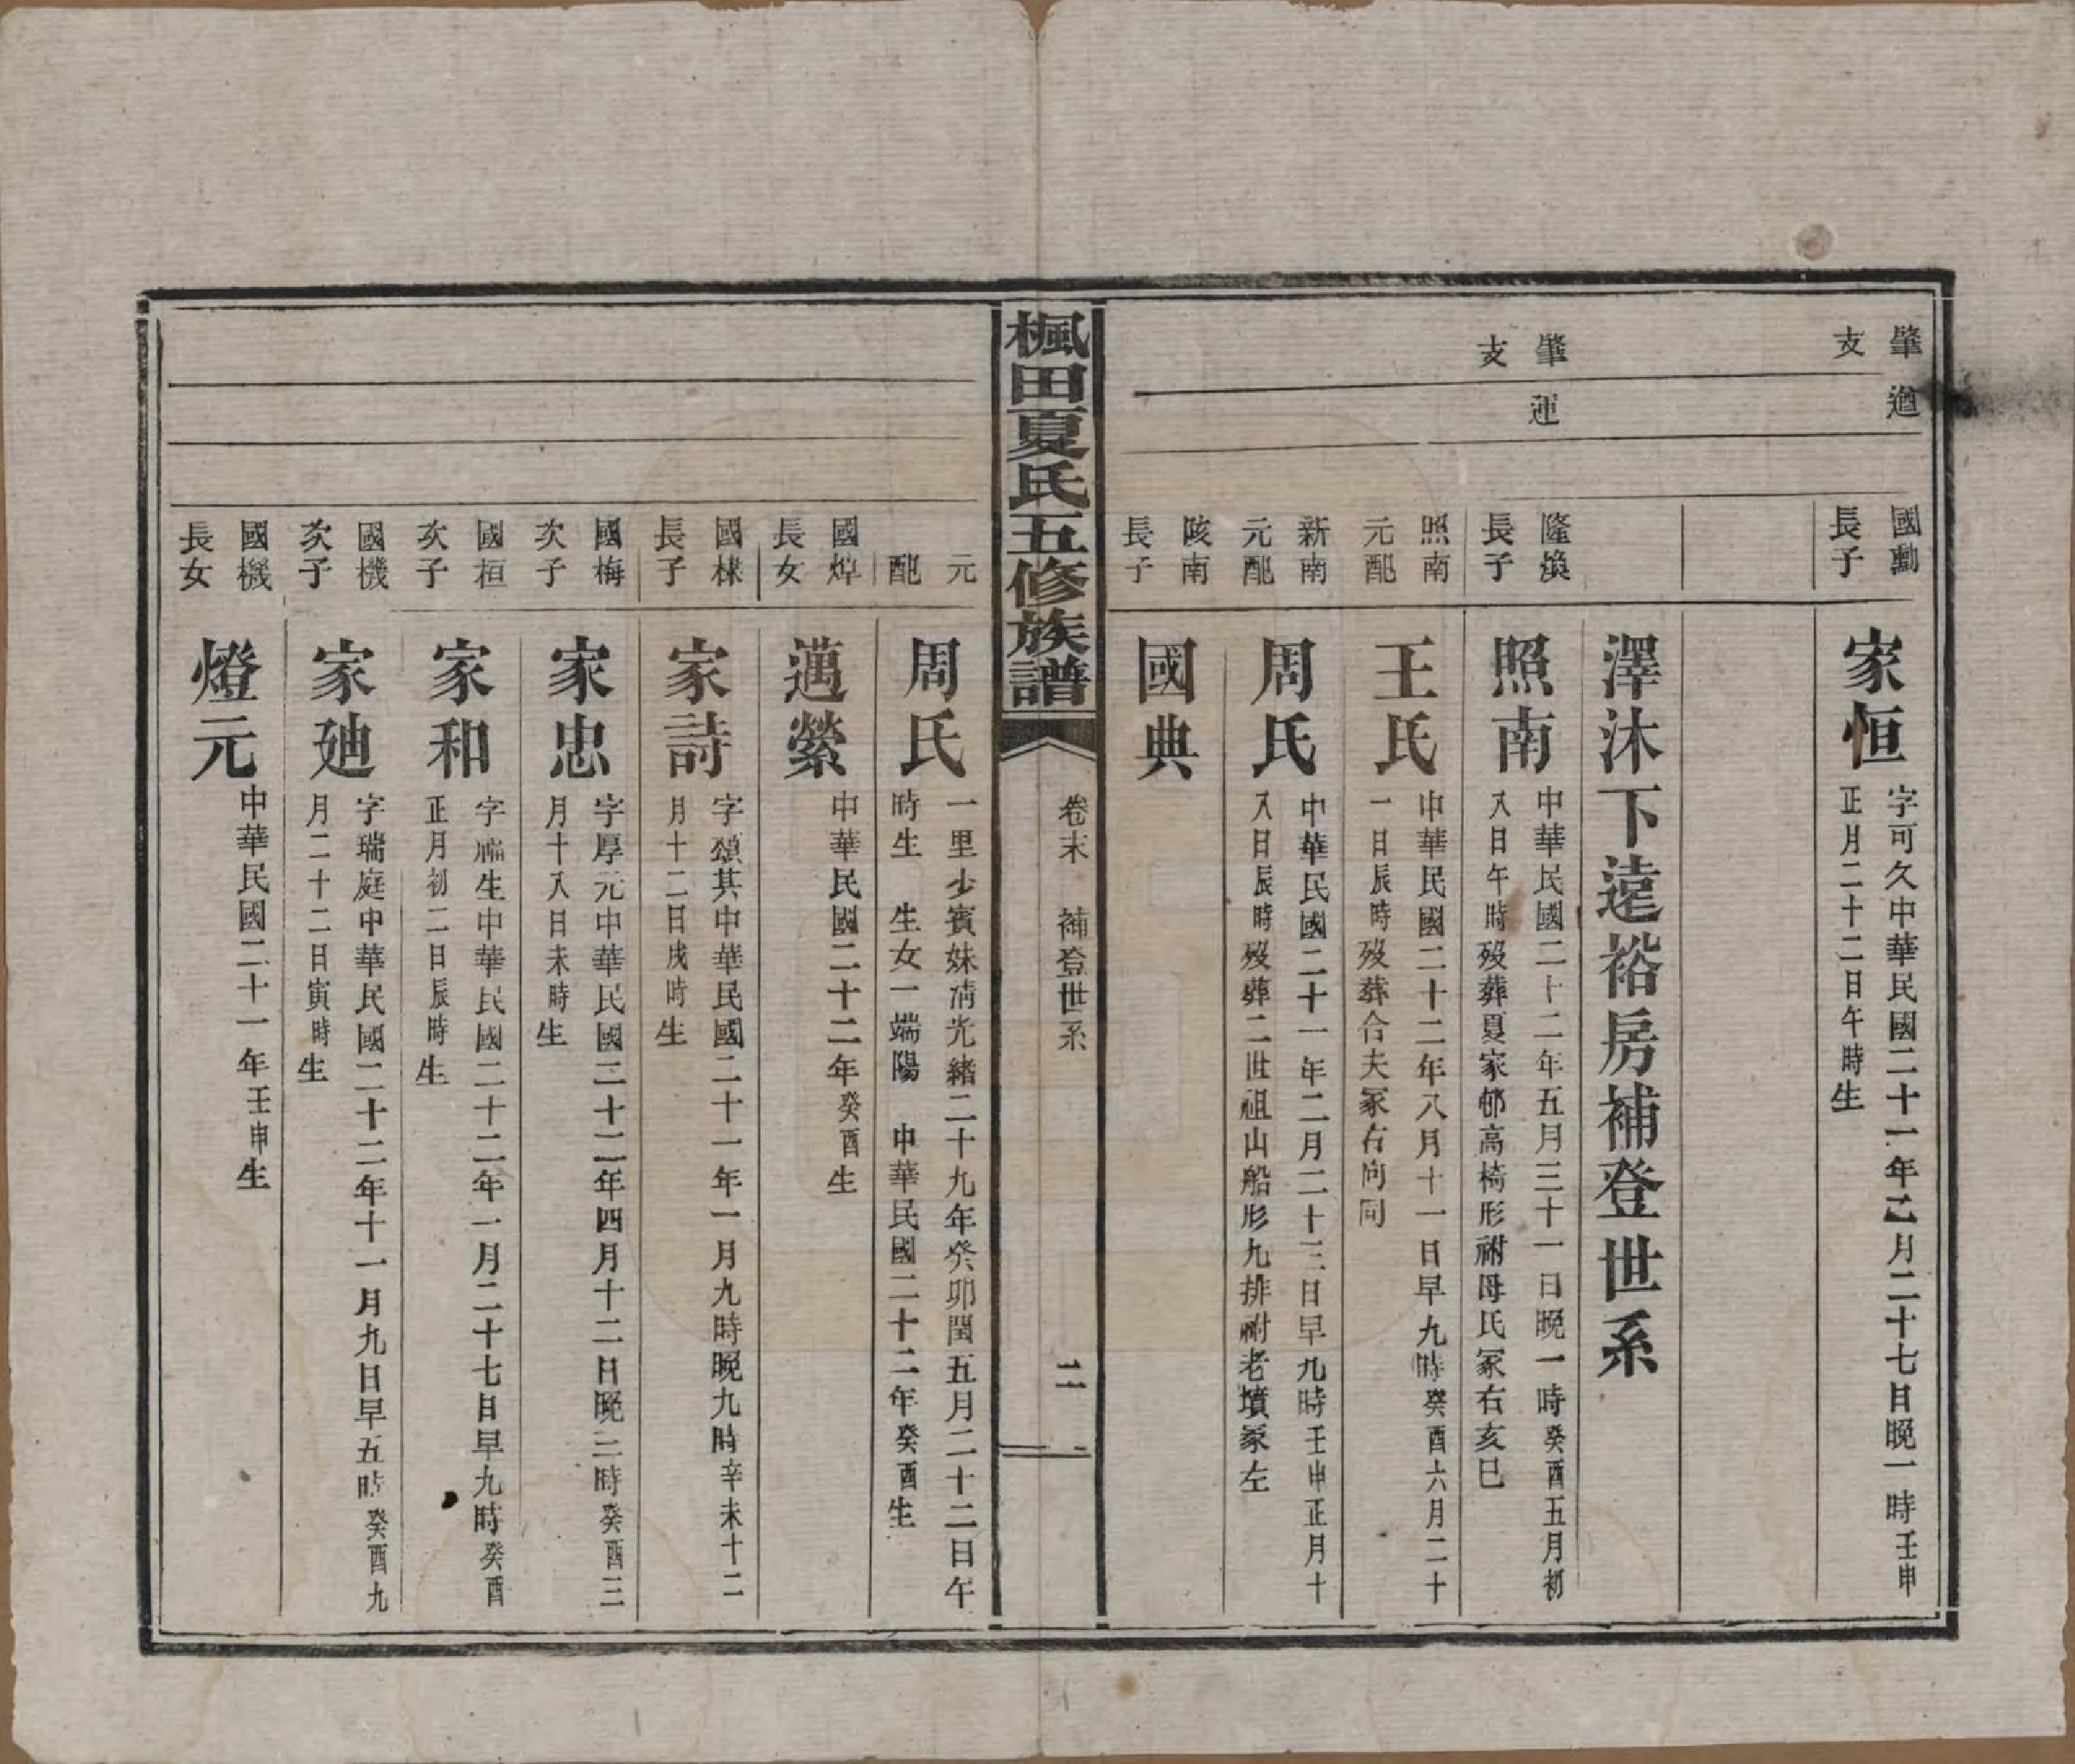 肇遒
支
國勳
長子
家恒
字可久中華民國二十一年二月二十七日晚一時壬申
正月二十二日午時生
澤沐下遠裕房補登世系
肇運
支
隆渙
長子
照南
中華民國二十二年五月三十一日晚一時癸酉五月初
八日午時歿葬夏家邨高椅形祔母氏冢右亥巳
照南
元配
王氏
中華民國二十二年八月十一日早九時癸酉六月二十
一日辰時歿葬合夫冢右向同
新南
元配
周氏
中華民國二十一年二月二十三日早九時壬申正月十
八日辰時歿葬二世祖山船形九排祔老墳冢左
陔南
長子
國典
楓田夏氏五修族譜
卷末 補登世系
二
元
配
周氏
一里少賓妹清光緒二十九年癸卯閏五月二十二日午
時生 生女一端陽 中華民國二十二年癸酉生
國焯
長女
邁縈
中華民國二十二年癸酉生
國棣
長子
家詩
字頌其中華民國二十一年一月九時晚九時辛未十二
月十二日戌時生
國梅
次子
家忠
字厚元中華民國二十二年四月十二日晚二時癸酉三
月十八日未時生
國桓
次子
家和
字生中華民國二十二年一月二十七日早九時癸酉
正月初二日辰時生
國機
次子
家廸
字瑞庭中華民國二十二年十一月九日早五時癸酉九
月二十二日寅時生
國機
長女
燈元
中華民國二十一年壬申生